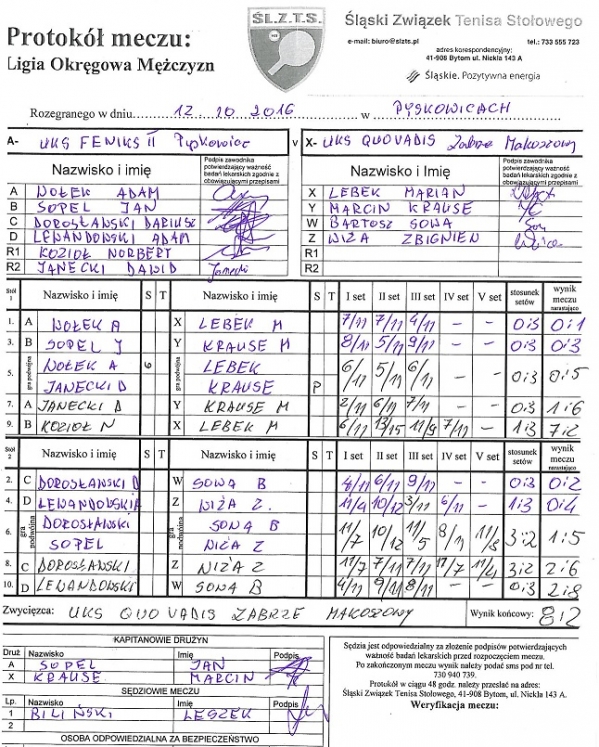 Ś.L.Z.T.S.
Śląski Związek Tenisa Stołowego
e-mail: biuro@slzts.pl tel.: 733 555 723
adres korespondencyjny:
41-908 Bytom ul. Nickla 143 A
Śląskie. Pozytywna energia
Protokół meczu:
Ligia Okręgowa Mężczyzn
Rozegranego w dniu 12.10.2016 w PYSKOWICACH
A- UKS FENIKS II Pyskowice v X- UKS QUOVADIS Zabrze Makoszowy
Nazwisko i Imię Podpis zawodnika potwierdzający ważność badań lekarskich zgodnie z obowiązującymi przepisami Nazwisko i Imię Podpis zawodnika potwierdzający ważność badań lekarskich zgodnie z obowiązującymi przepisami
A WOŁEK ADAM X LEBEK MARIAN
B SOPEL JAN Y MARCIN KRAUSE
C DOROSŁAWSKI DARIUSZ W BARTOSZ SOWA
D LEWANDOWSKI ADAM Z WIŻA ZBIGNIEW
R1 KOZIOŁ NORBERT R1
R2 JANECKI DAWID Janecki R2
Stół 1 Nazwisko i imię S T Nazwisko i imię S T I set II set III set IV set V set stosunek setów wynik meczu narastająco
1. A WOŁEK A X LEBEK M 7/11 7/11 4/11 - - 0:3 0:1
3. B SOPEL J Y KRAUSE M 8/11 5/11 9/11 - - 0:3 0:3
5. gra podwójna WOŁEK A 6 LEBEK 6/11 5/11 6/11 - - 0:3 0:5
JANECKI D KRAUSE P
7. A JANECKI D Y KRAUSE M 2/11 6/11 7/11 0:3 1:6
9. B KOZIOŁ N X LEBEK M 6/11 13/15 11/9 7/11 - 1:3 7:2
Stół 2 Nazwisko i imię S T Nazwisko i imię S T I set II set III set IV set V set stosunek setów wynik meczu narastająco
2. C DOROSŁAWSKI D W SOWA B 4/11 6/11 9/11 - - 0:3 0:2
4. D LEWANDOWSKI A Z WIŻA Z. 11/4 10/12 3/11 6/11 - 1:3 0:4
6. gra podwójna DOROSŁAWSKI SOWA B 11/7 10/12 11/5 8/11 11/8 3:2 1:5
SOPEL WIŻA Z
8. C DOROSŁAWSKI Z WIŻA Z 11/7 7/11 7/11 11/7 11/4 3:2 2:6
10. D LEWANDOWSKI W SOWA B 4/11 9/11 8/11 - - 0:3 2:8
Zwycięzca: UKS QUO VADIS ZABRZE MAKOSZOWY Wynik końcowy: 8:2
KAPITANOWIE DRUŻYN
Druż Nazwisko Imię Podpis
A SOPEL JAN
X KRAUSE MARCIN
SĘDZIOWIE MECZU
Lp. Nazwisko Imię Podpis
1 BILIŃSKI LESZEK
2
OSOBA ODPOWIADAJĄCA ZA BEZPIECZEŃSTWO
Sędzia jest odpowiedzialny za złożenie podpisów potwierdzających
ważność badań lekarskich przed rozpoczęciem meczu.
Po zakończonym meczu wynik należy podać sms pod nr tel.
730 940 739.
Protokół w ciągu 48 godz. należy przesłać na adres:
Śląski Związek Tenisa Stołowego, 41-908 Bytom, ul. Nickla 143 A.
Weryfikacja meczu: